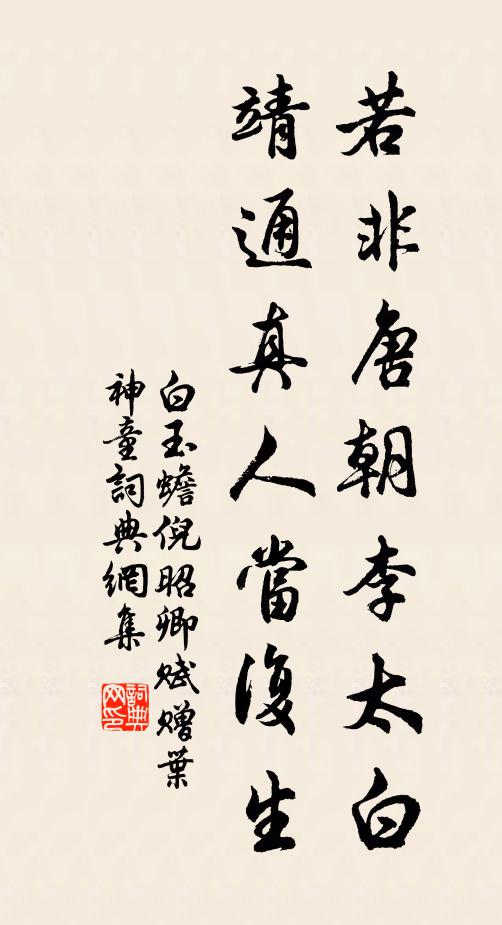 若非唐朝李太白
靖通真人當復生
白玉蟾倪昭卿賦贈葉
神童詞典網集
詞典
网印